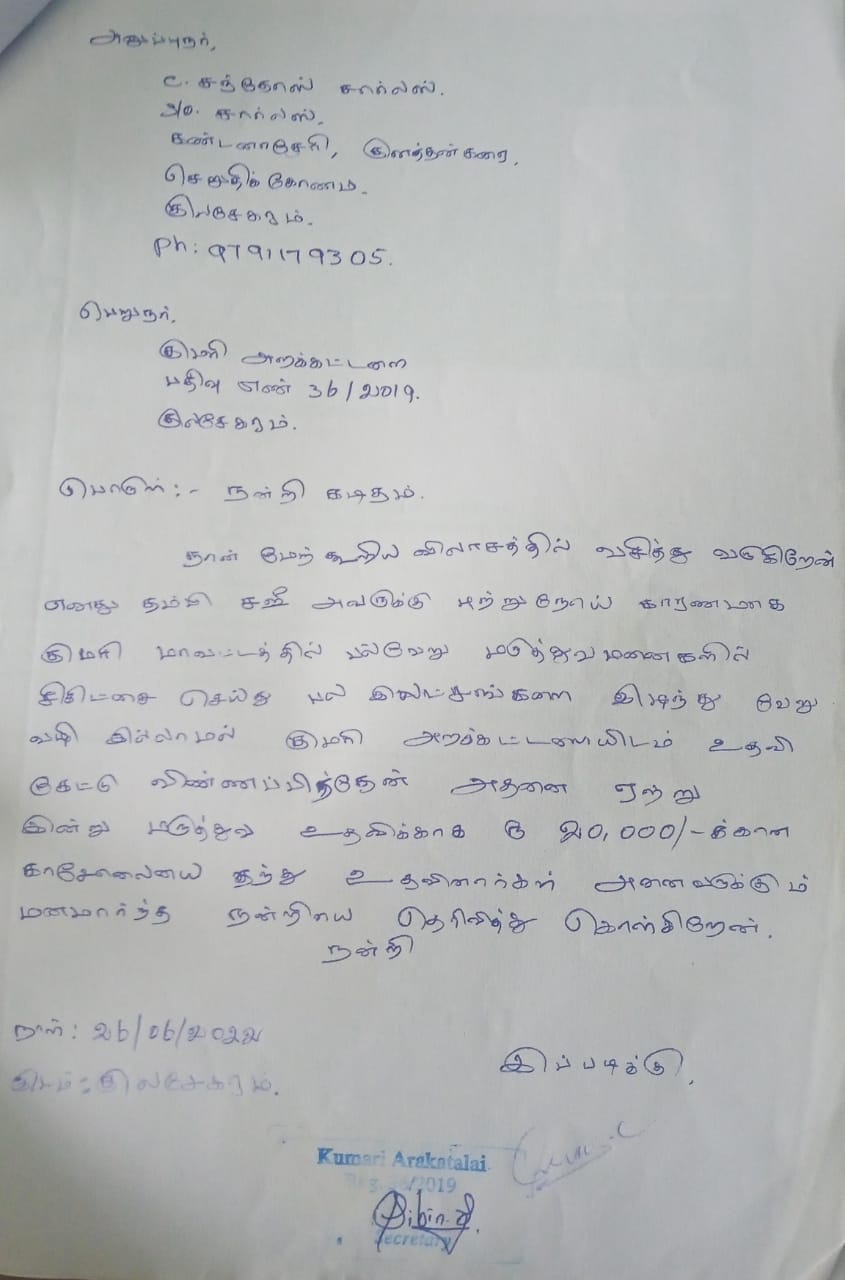 அனுப்புநர்,
C. சந்தோஸ் சார்லஸ்.
S/o. சார்லஸ்.
கண்டனாசேரி, குளத்தன்கரை,
செறுதிக்கோணம்.
குலசேகரம்.
Ph: 9791179305.
பெறுநர்,
குமரி அறக்கட்டளை
பதிவு எண் 36/2019.
குலசேகரம்.
பொருள் :- நன்றி கடிதம்.
நான் மேற் கூறிய விலாசத்தில் வசித்து வருகிறேன்
எனது தம்பி சஜீ அவருக்கு புற்றுநோய் காரணமாக
குமரி மாவட்டத்தில் பல்வேறு மருத்துவமனைகளில்
சிகிட்சை செய்து பல இலட்சங்களை இழந்து வேறு
வழி இல்லாமல் குமரி அறக்கட்டளையிடம் உதவி
கேட்டு விண்ணப்பித்தேன் அதனை ஏற்று
இன்று மருத்துவ உதவிக்காக ரூ 20,000/-க்கான
காசோலையை தந்து உதவினார்கள் அனைவருக்கும்
மனமார்ந்த நன்றியை தெரிவித்து கொள்கிறேன்.
நன்றி
நாள் : 26/06/2022
இடம் : குலசேகரம்.
இப்படிக்கு,
Kumari Arakatalai
/2019
Bibin.
Secretary